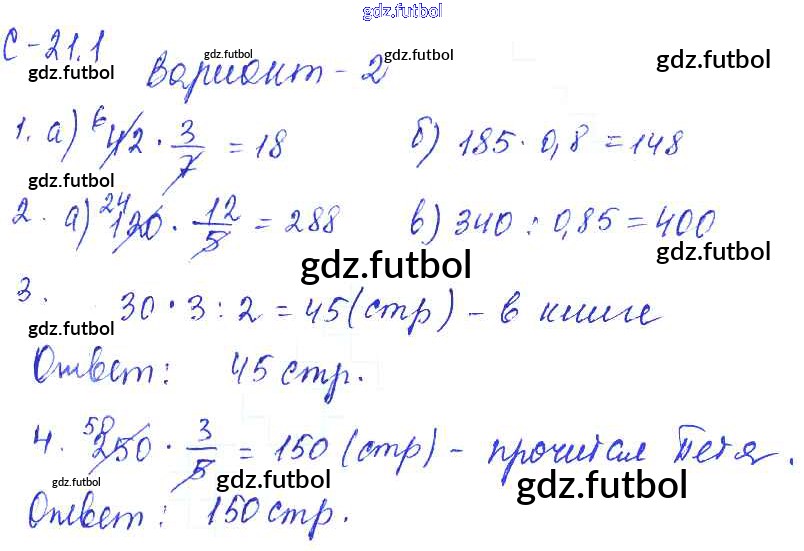 gdz.futbol
С-21.1
gdz.futbol gdz.futbol gdz.futbol gdz.futbol
Вариант - 2
1. а) 6 42 · 3/7 = 18 б) 185 · 0,8 = 148
gdz.futbol
2. а) 24 120 · 12/5 = 288 в) 340 : 0,85 = 400
gdz.futbol gdz.futbol
3. 30 · 3 : 2 = 45 (стр) - в книге
gdz.futbol
Ответ: 45 стр.
4. 50 250 · 3/5 = 150 (стр) - прочитал Петя.
gdz.futbol gdz.futbol gdz.futbol
Ответ: 150 стр.